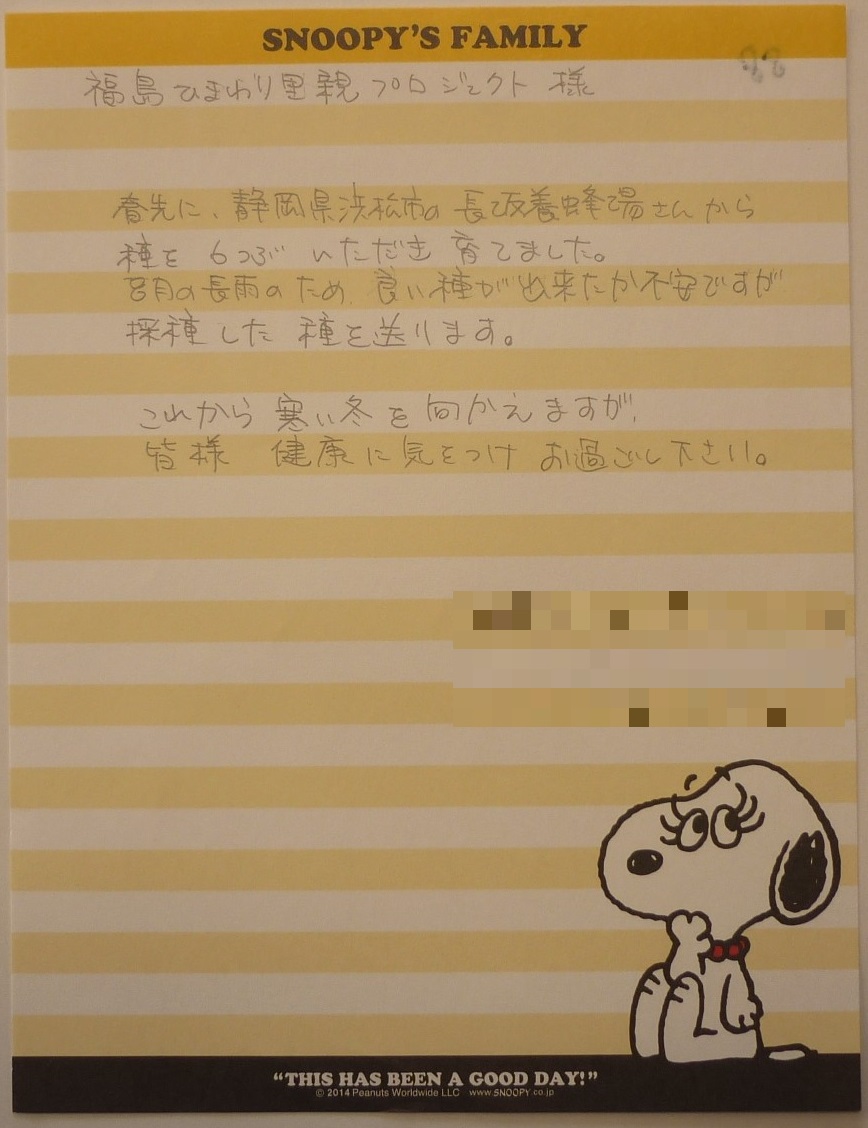 SNOOPY'S FAMILY
福島ひまわり里親プロジェクト 様
春先に、静岡県浜松市の長坂養蜂場さんから
種を 6つぶ いただき 育てました。
8月の長雨のため、良い種が出来たか不安ですが
採種した 種を送ります。
これから 寒い冬を 向かえますが、
皆様 健康に気をつけ お過ごし下さい。
"THIS HAS BEEN A GOOD DAY!"
© 2014 Peanuts Worldwide LLC www.SNOOPY.co.jp